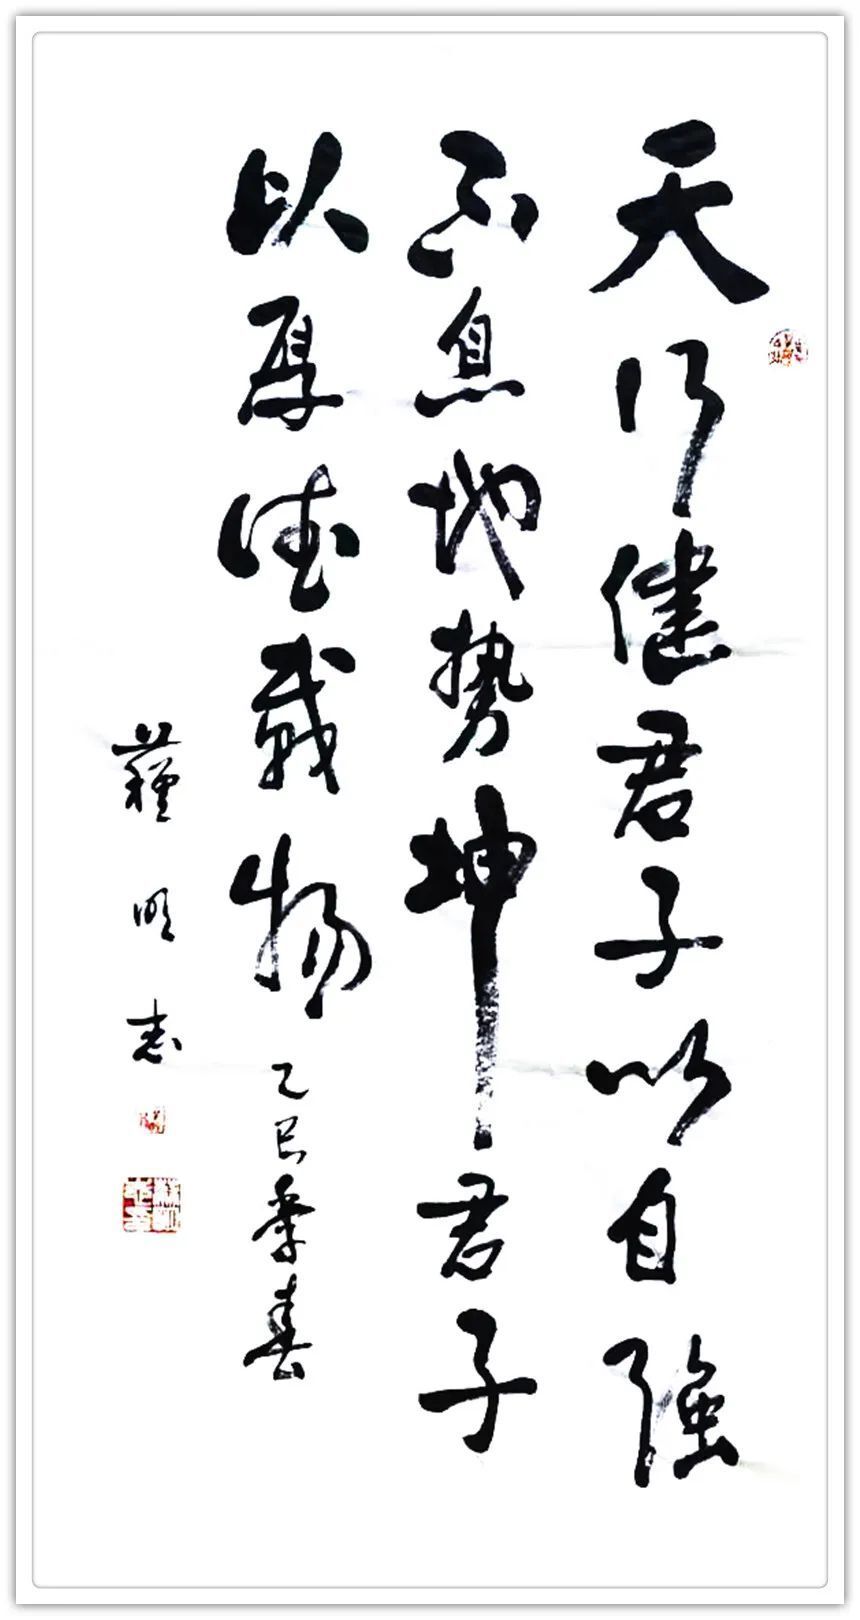 天行健君子以自强
不息地势坤君子
以厚德載物 乙巳季春
明志